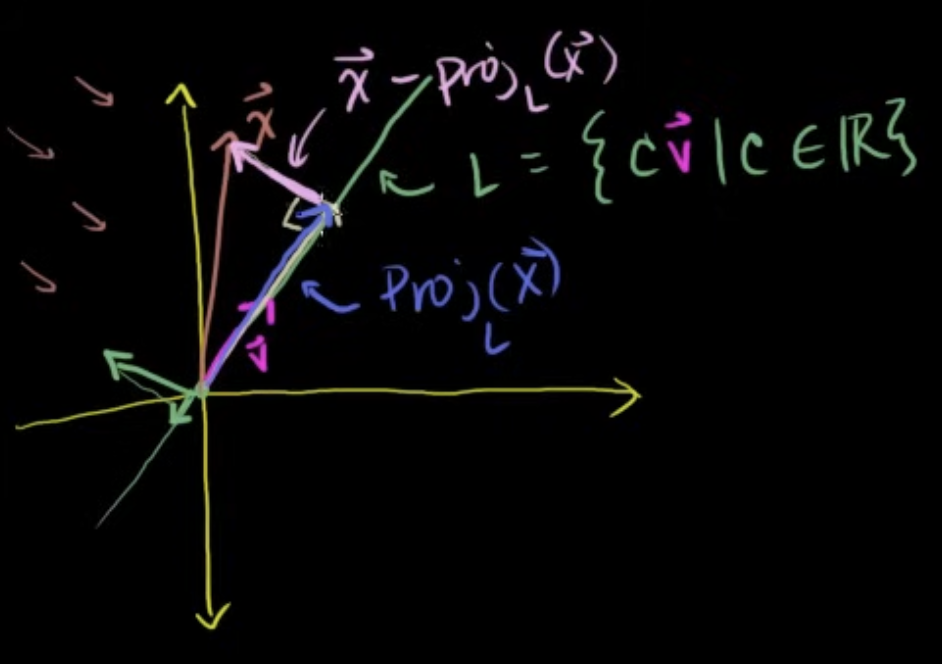 x⃗ - Proj_L(x⃗)
x⃗
L = {cv⃗ | c ∈ ℝ}
Proj_L(x⃗)
v⃗